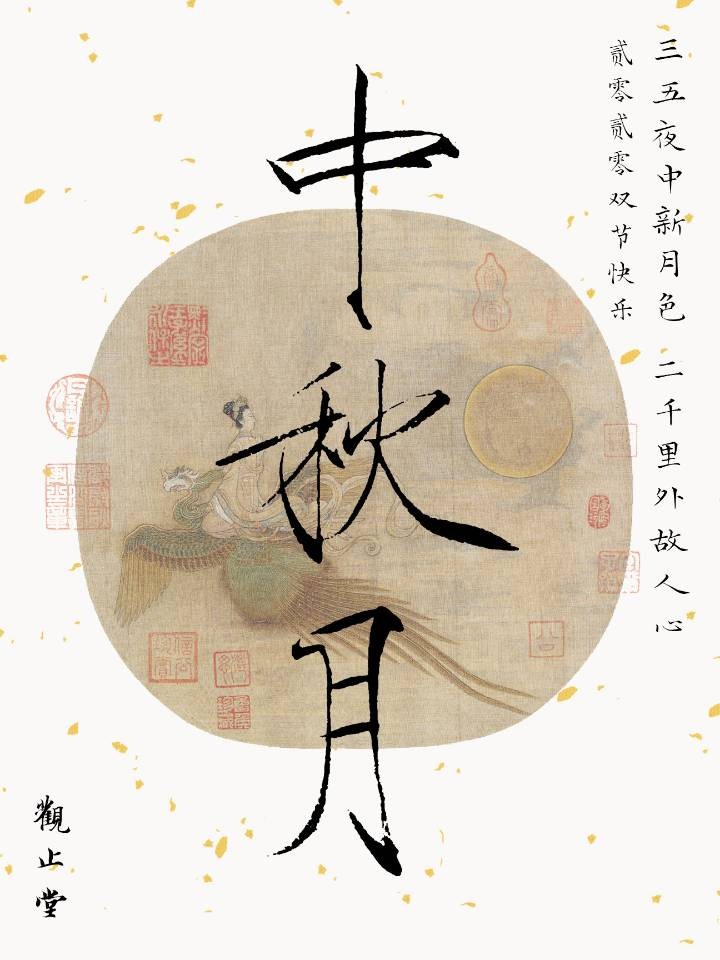 三五夜中新月色 二千里外故人心
贰零贰零双节快乐
中秋月
觀止堂